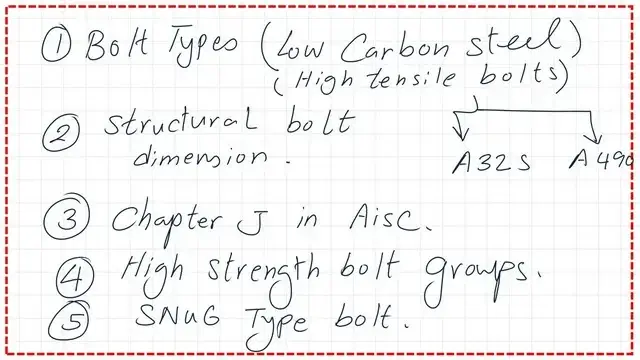 ① Bolt Types (Low Carbon steel)
(High tensile bolts)
② Structural bolt
dimension.
A325 A490
③ Chapter J in AisC.
④ High strength bolt groups.
⑤ SNuG Type bolt.